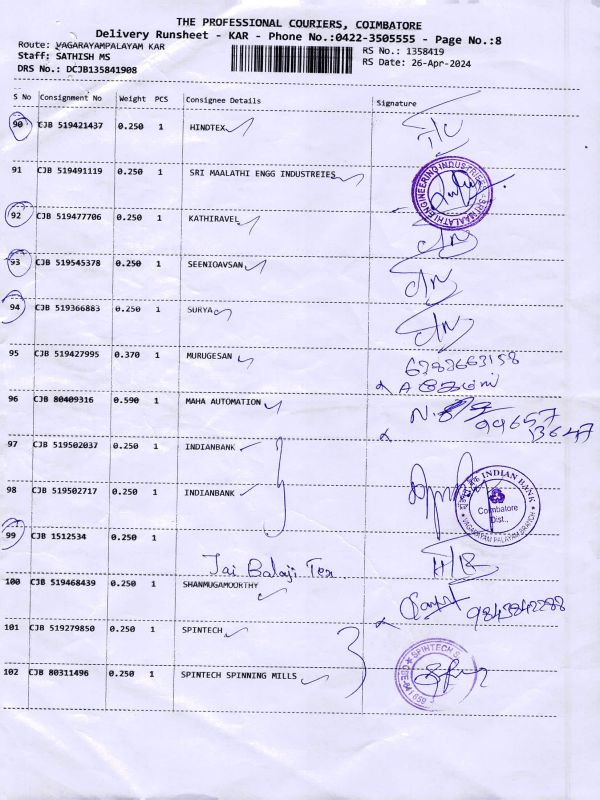 THE PROFESSIONAL COURIERS, COIMBATORE
Delivery Runsheet - KAR - Phone No.:0422-3505555 - Page No.:8
Route: VAGARAYAMPALAYAM KAR
RS No.: 1358419
Staff: SATHISH MS
RS Date: 26-Apr-2024
DRS No.: DCJB135841908
S No Consignment No Weight PCS Consignee Details Signature
90 CJB 519421437 0.250 1 HINDTEX
91 CJB 519491119 0.250 1 SRI MAALATHI ENGG INDUSTREIES SRI MAALATHI ENGINEERING INDUSTRIES
92 CJB 519477706 0.250 1 KATHIRAVEL
93 CJB 519545378 0.250 1 SEENIOAVSAN
94 CJB 519366883 0.250 1 SURYA
95 CJB 519427995 0.370 1 MURUGESAN 6383663158
96 CJB 80409316 0.590 1 MAHA AUTOMATION 99657
13647
97 CJB 519502037 0.250 1 INDIANBANK
98 CJB 519502717 0.250 1 INDIANBANK INDIAN BANK Coimbatore Dist., VAGARAYAM PALAYAM BRANCH
99 CJB 1512534 0.250 1
Jai Balaji Tex
100 CJB 519468439 0.250 1 SHANMUGAMOORTHY 9843842288
101 CJB 519279850 0.250 1 SPINTECH
102 CJB 80311496 0.250 1 SPINTECH SPINNING MILLS SPINTECH